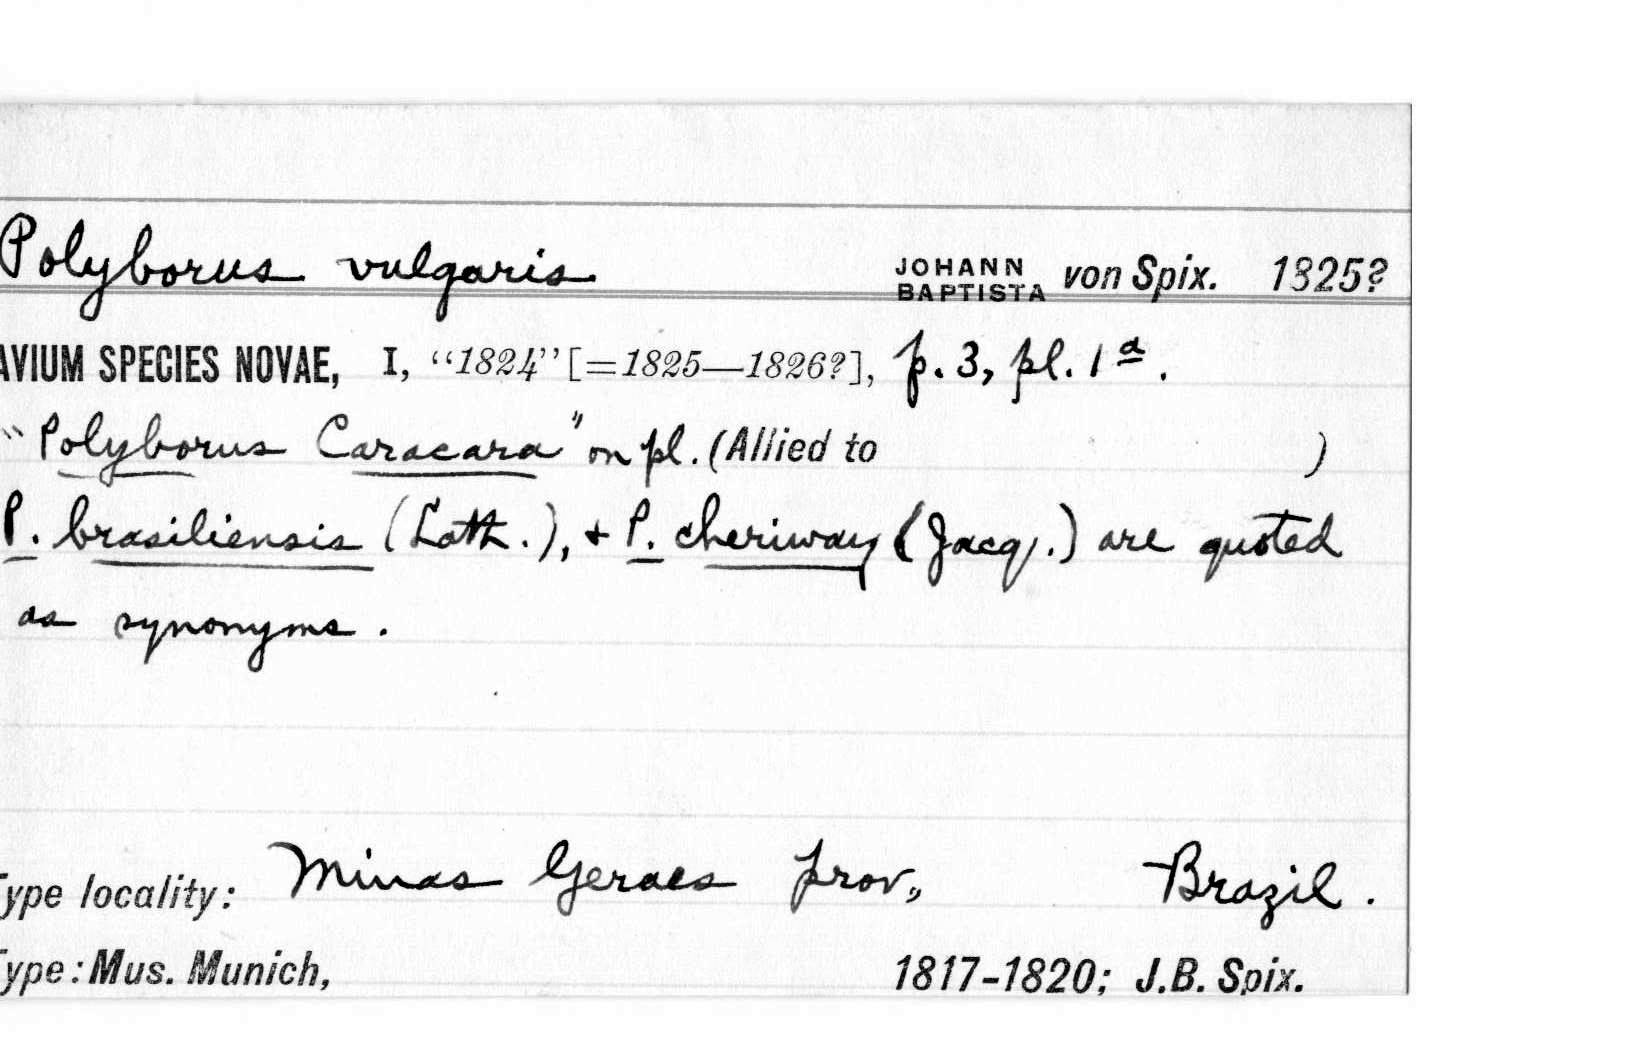 Polyborus vulgaris JOHANN BAPTISTA von Spix. 1825?
AVIUM SPECIES NOVAE, I, “1824” [=1825—1826?], p. 3, pl. 1a.
"Polyborus Caracara" on pl. (Allied to )
P. brasiliensis (Lath.), + P. cheriway (Jacq.) are quoted
as synonyms.
Type locality: Minas Geraes prov., Brazil.
Type: Mus. Munich, 1817-1820; J.B. Spix.